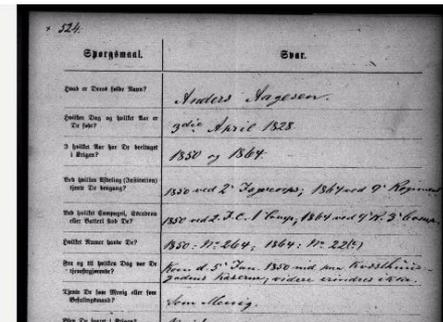 524.
Spørgsmaal. Svar.
Hvad er Deres fulde Navn?
Anders Aagesen.
Hvilken Dag og hvilket Aar er
De født?
3die April 1828
I hvilket Aar har De deeltaget
i Krigen?
1850 og 1864
Ved hvilken Afdeling (Institution)
tjente De dengang?
1850 ved 2' ; 1864 ved 9' Regiment
Ved hvilket Compagni, Escadron
eller Batteri stod De?
1850 ved 2. J. C. 1' Comp; 1864 ved 9' R. 3' Comp.
Hvilket Numer havde De?
1850: No 264; 1864: No 22
Fra og til hvilken Dag var De
tjenestgjørende?
Kom d. 5' Jan. 1850 ind paa
Kaserne, videre erindres ikke.
Tjente De som Menig eller som
Befalingsmand?
Som Menig.